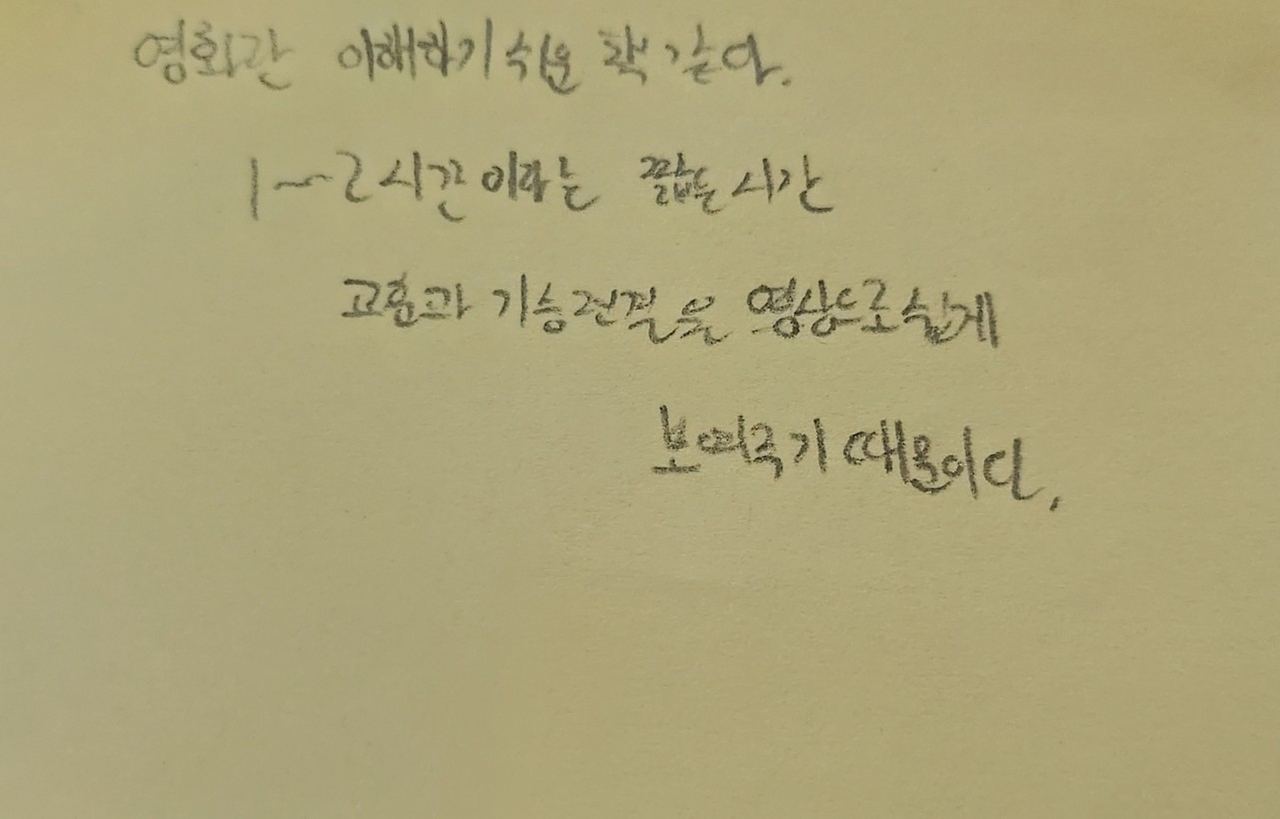 영화관 이해하기 쉬운 책 같아.
1~2시간이라는 짧은 시간
교훈과 기승전결을 영상으로 쉽게
보여주기 때문이다.